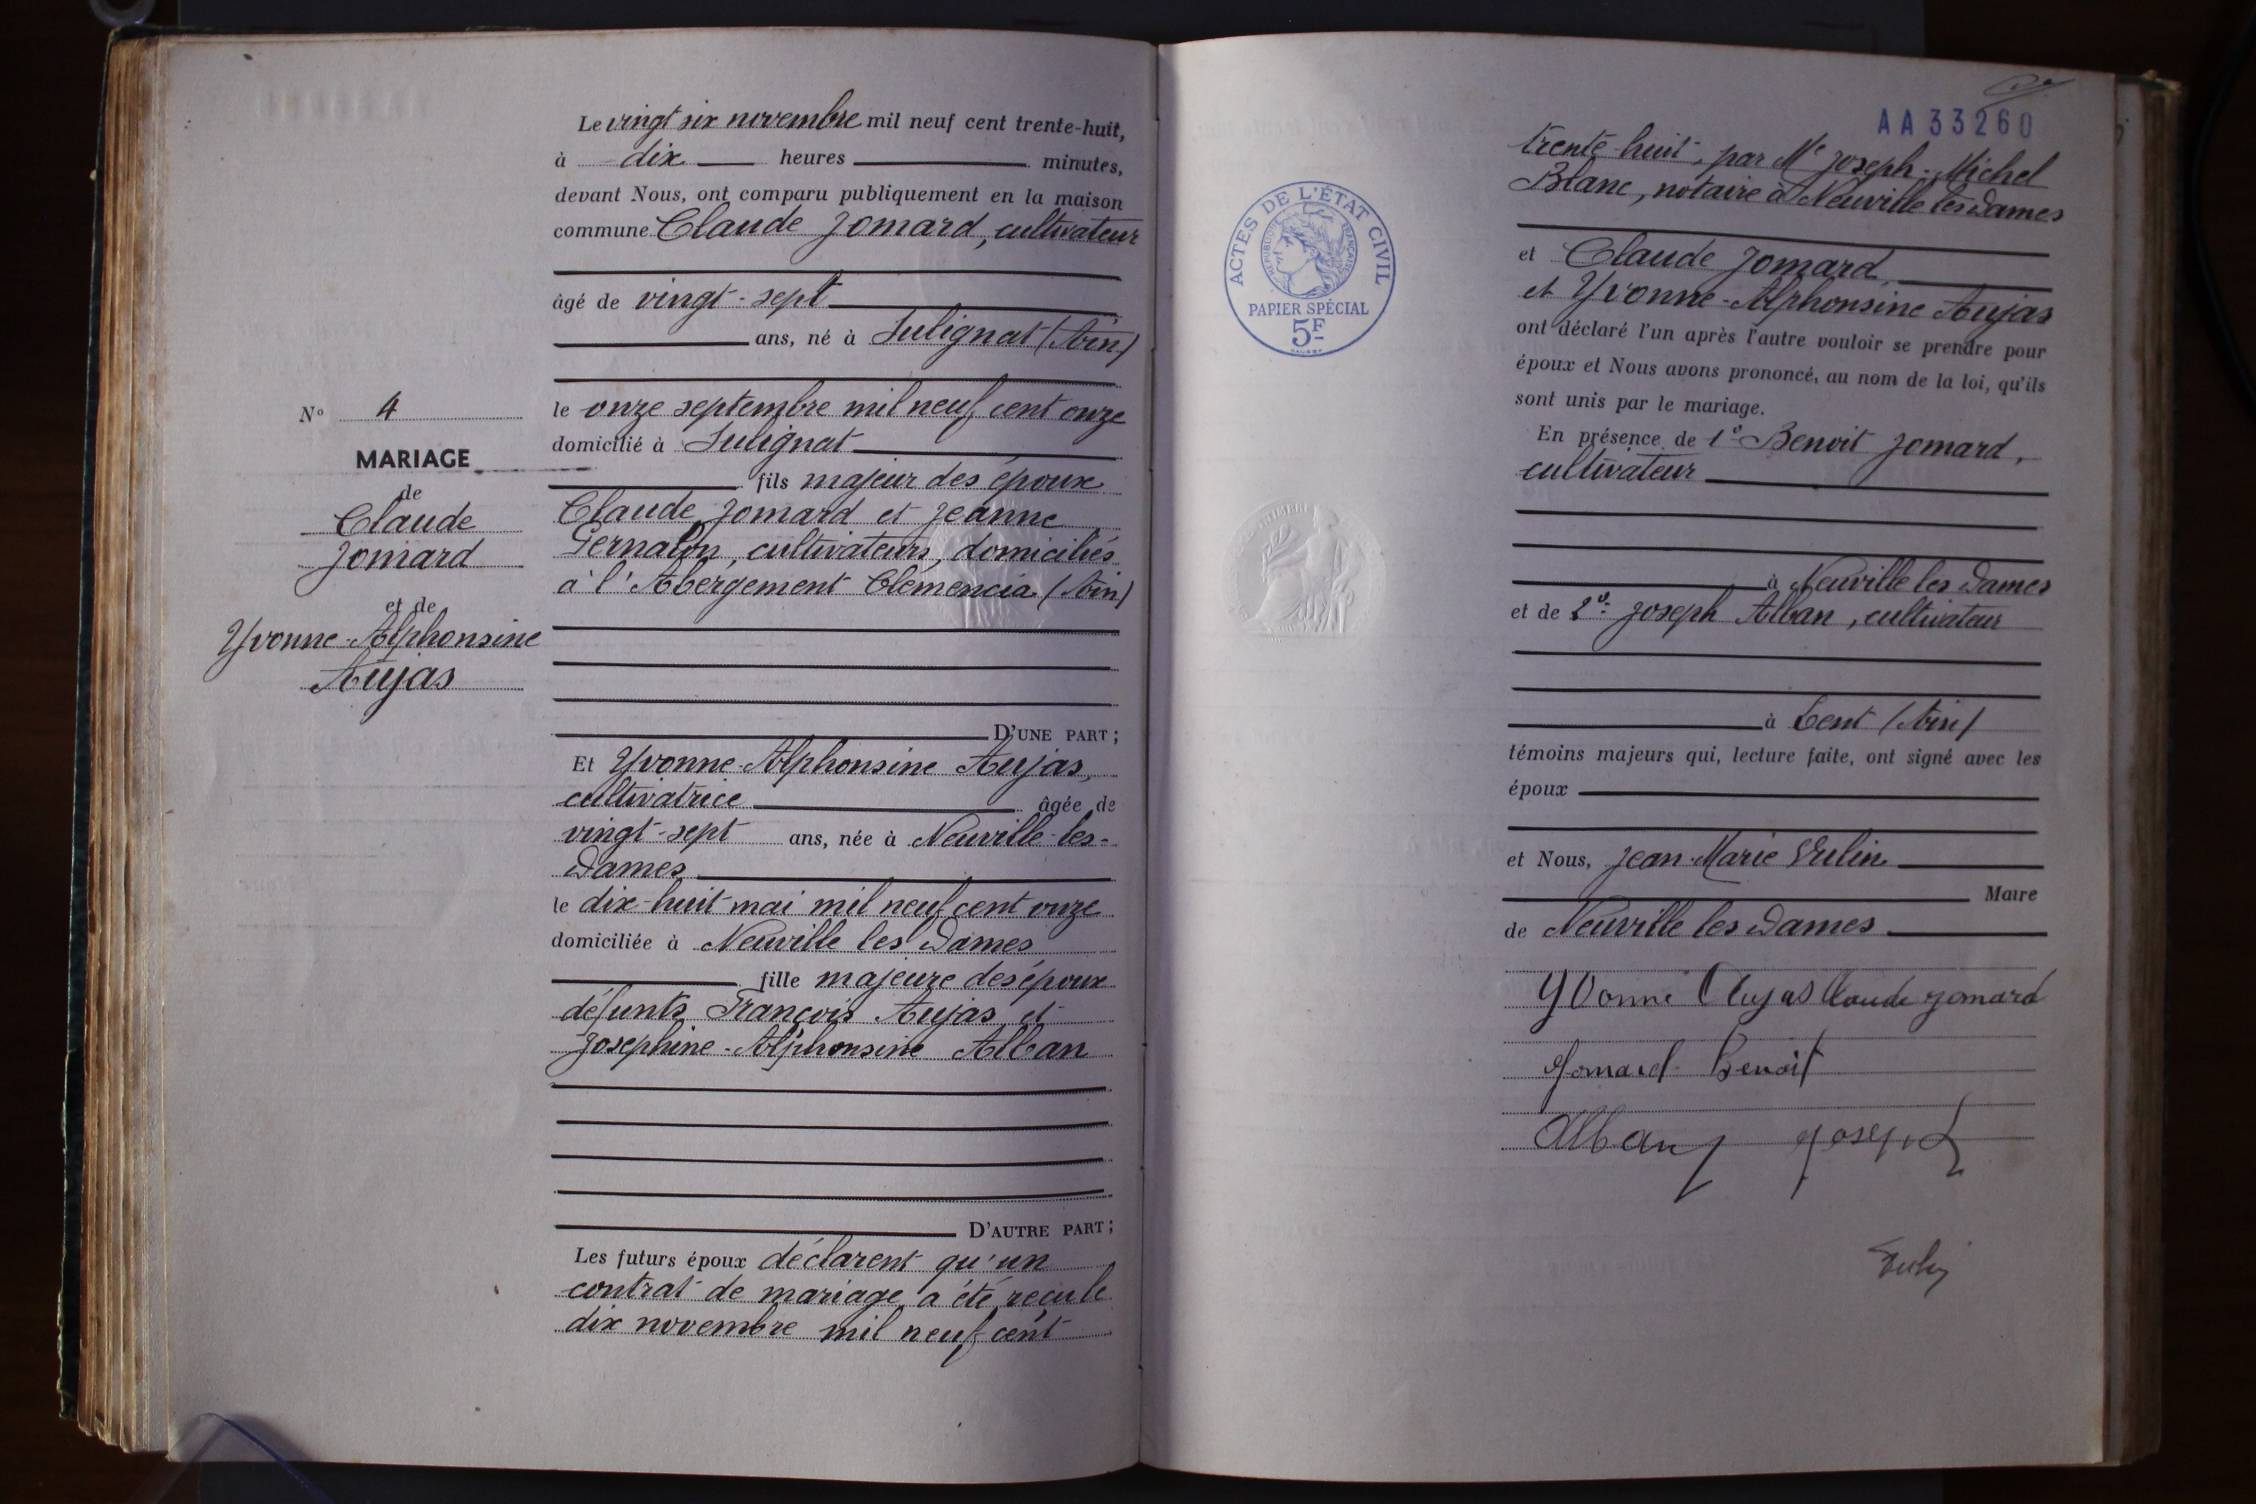 Le vingt six novembre mil neuf cent trente-huit,
à dix heures minutes,
devant Nous, ont comparu publiquement en la maison
commune Claude Jomard, cultivateur
âgé de vingt-sept
ans, né à Sulignat (Ain)
le onze septembre mil neuf cent onze
domicilié à Sulignat
fils majeur des époux
Claude Jomard et Jeanne
cultivateurs, domiciliés
à l'Abergement Clémencia (Ain)
D'UNE PART;
Et Yvonne-Alphonsine Aujas,
cultivatrice âgée de
vingt-sept ans, née à Neuville-les-
Dames
le dix-huit mai mil neuf cent onze
domiciliée à Neuville les Dames
fille majeure des époux
défunts François Aujas et
Joséphine-Alphonsine Alban
D'AUTRE PART;
Les futurs époux déclarent qu'un
contrat de mariage a été reçu le
dix novembre mil neuf cent
N° 4
MARIAGE
de
Claude
Jomard
et de
Yvonne-Alphonsine
Aujas
AA33260
trente-huit, par Me Joseph-Michel
Blanc, notaire à Neuville les Dames
et Claude Jomard
et Yvonne-Alphonsine Aujas
ont déclaré l'un après l'autre vouloir se prendre pour
époux et Nous avons prononcé, au nom de la loi, qu'ils
sont unis par le mariage.
En présence de 1° Benoit Jomard,
cultivateur
à Neuville les Dames
et de 2° Joseph Alban, cultivateur
à Lent (Ain)
témoins majeurs qui, lecture faite, ont signé avec les
époux
et Nous, Jean-Marie Vulin
Maire
de Neuville les Dames
Yvonne Aujas Claude Jomard
Jomard Benoit
Alban Joseph
Vulin
ACTES DE L'ÉTAT CIVIL
RÉPUBLIQUE FRANÇAISE
PAPIER SPÉCIAL
5F